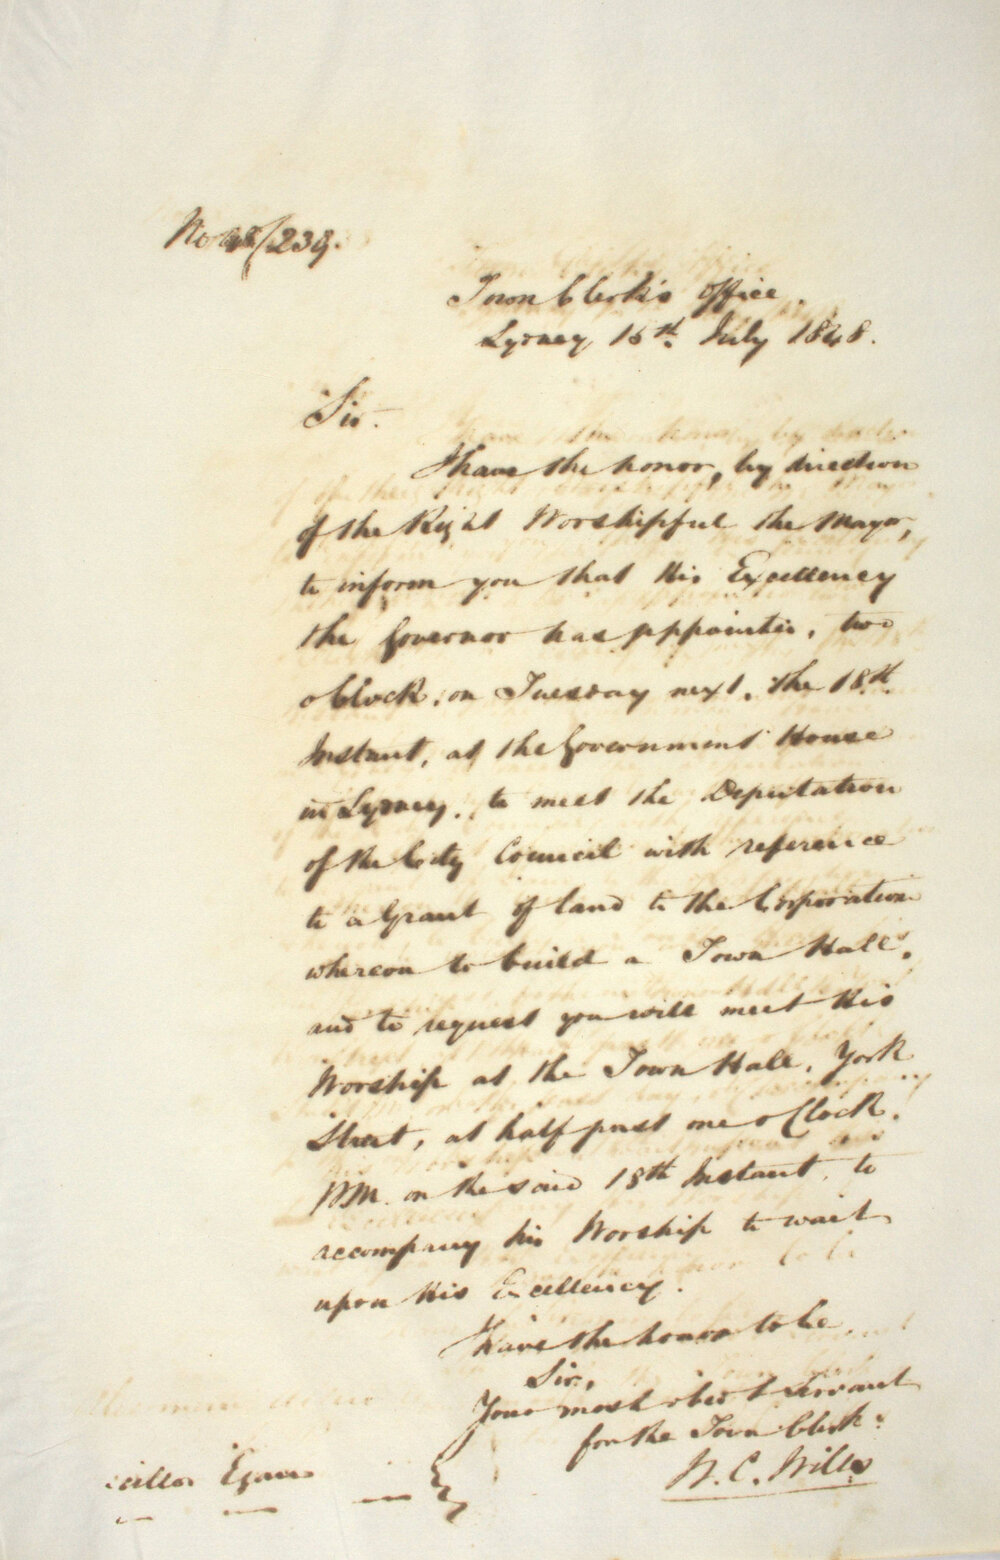 No 48/239.
Town Clerk's Office.
Sydney 15th. July 1848.
Sir.
I have the honor, by direction
of the Right Worshipful the Mayor,
to inform you that His Excellency
the Governor has appointed, two
o Clock, on Tuesday next, the 18th.
Instant, at the Government House
in Sydney, to meet the Deputation
of the City Council with reference
to a Grant of land to the Corporation
whereon to build a Town Hall,
and to request you will meet His
Worship at the Town Hall, York
Street, at half past one o Clock.
PM. on the said 18th Instant, to
accompany his Worship to wait
upon His Excellency.
I have the honor to be,
Sir,
Your most obedt Servant
for the Town Clerk.
W. C. Wills
cillor Egan